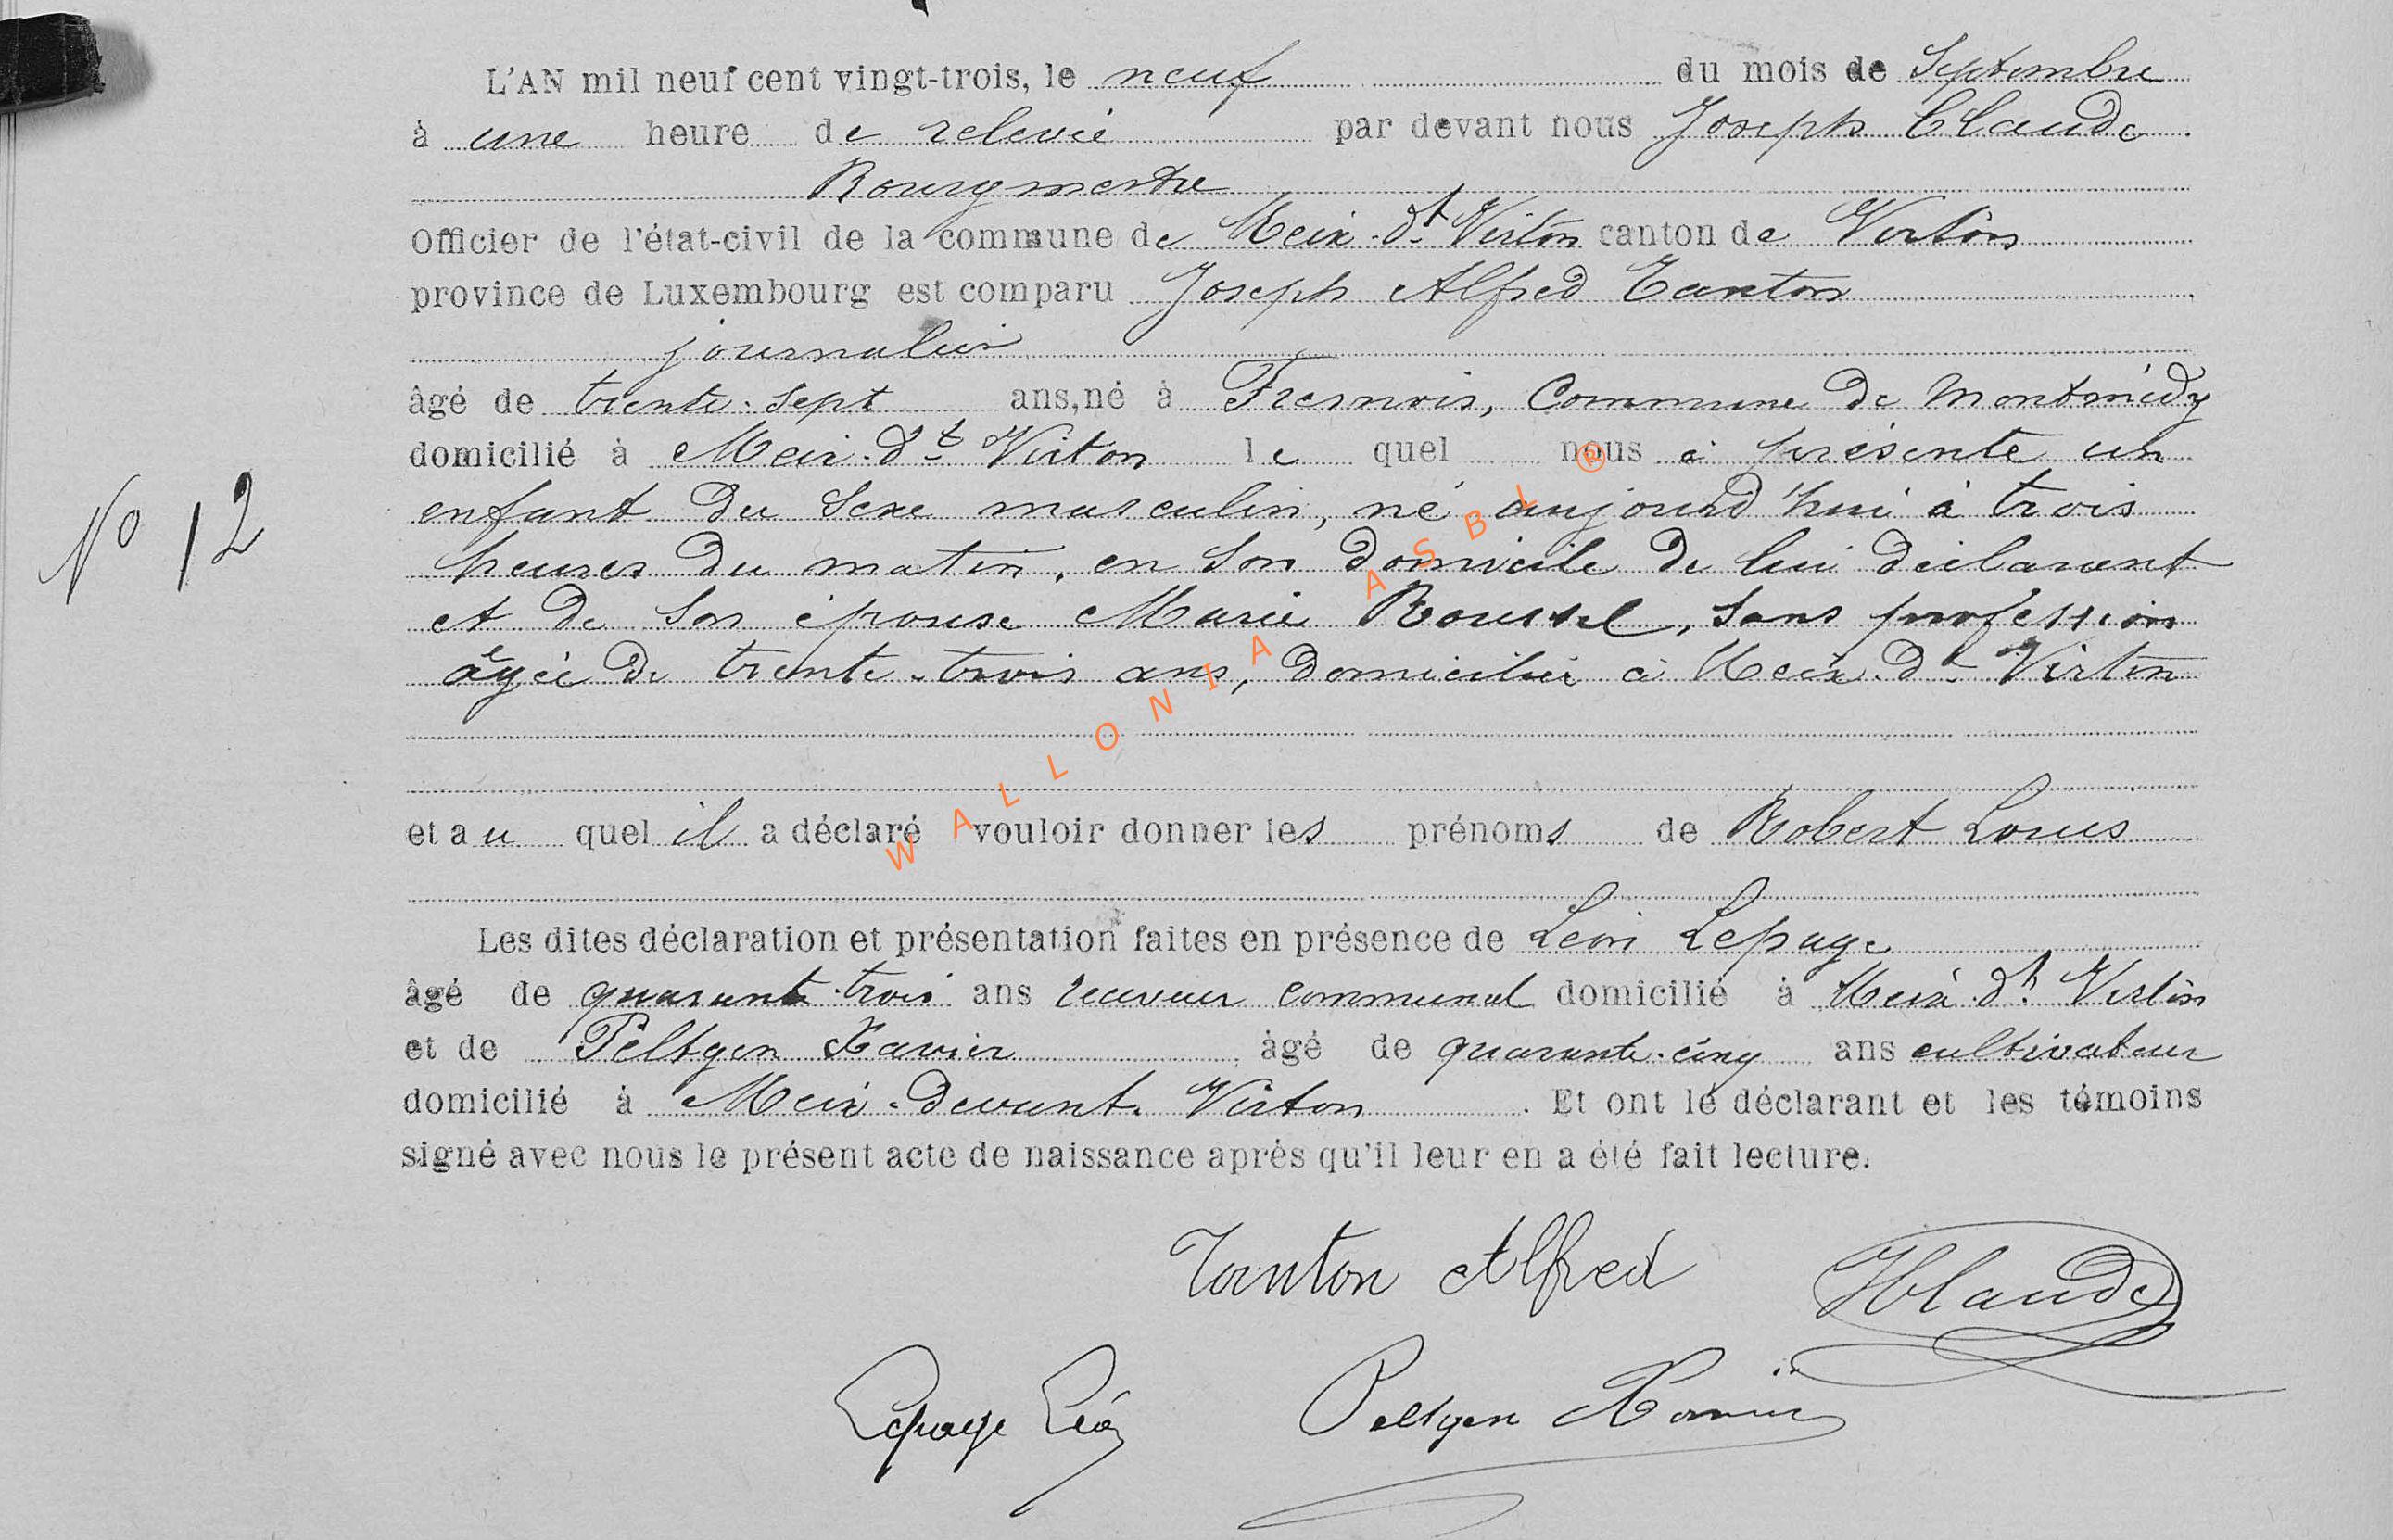 L'AN mil neuf cent vingt-trois, le neuf du mois de Septembre
à une heure de relevée par devant nous Joseph Claude
Bourgmestre
Officier de l'état-civil de la commune de Meix-dt Virton canton de Virton
province de Luxembourg est comparu Joseph Alfred Tanton
journalier
âgé de trente-sept ans, né à Fresnois, Commune de Montmédy
domicilié à Meix-dt Virton le quel nous a présenté un
enfant du sexe masculin, né aujourd'hui à trois
heures du matin, en son domicile de lui déclarant
No 12
et de son épouse Marie Roussel, sans profession
âgée de trente-trois ans, domiciliée à Meix-dt Virton
et au quel il a déclaré vouloir donner les prénoms de Robert Louis
Les dites déclaration et présentation faites en présence de Léon Lepage
âgé de quarante-trois ans receveur communal domicilié à Meix-dt Virton
et de Peltgen Xavier âgé de quarante-cinq ans cultivateur
domicilié à Meix-devant-Virton. Et ont le déclarant et les témoins
signé avec nous le présent acte de naissance après qu'il leur en a été fait lecture.
Tanton Alfred JClaude
Lepage Léon Peltgen Xavier
WALLONIA ASBL ®